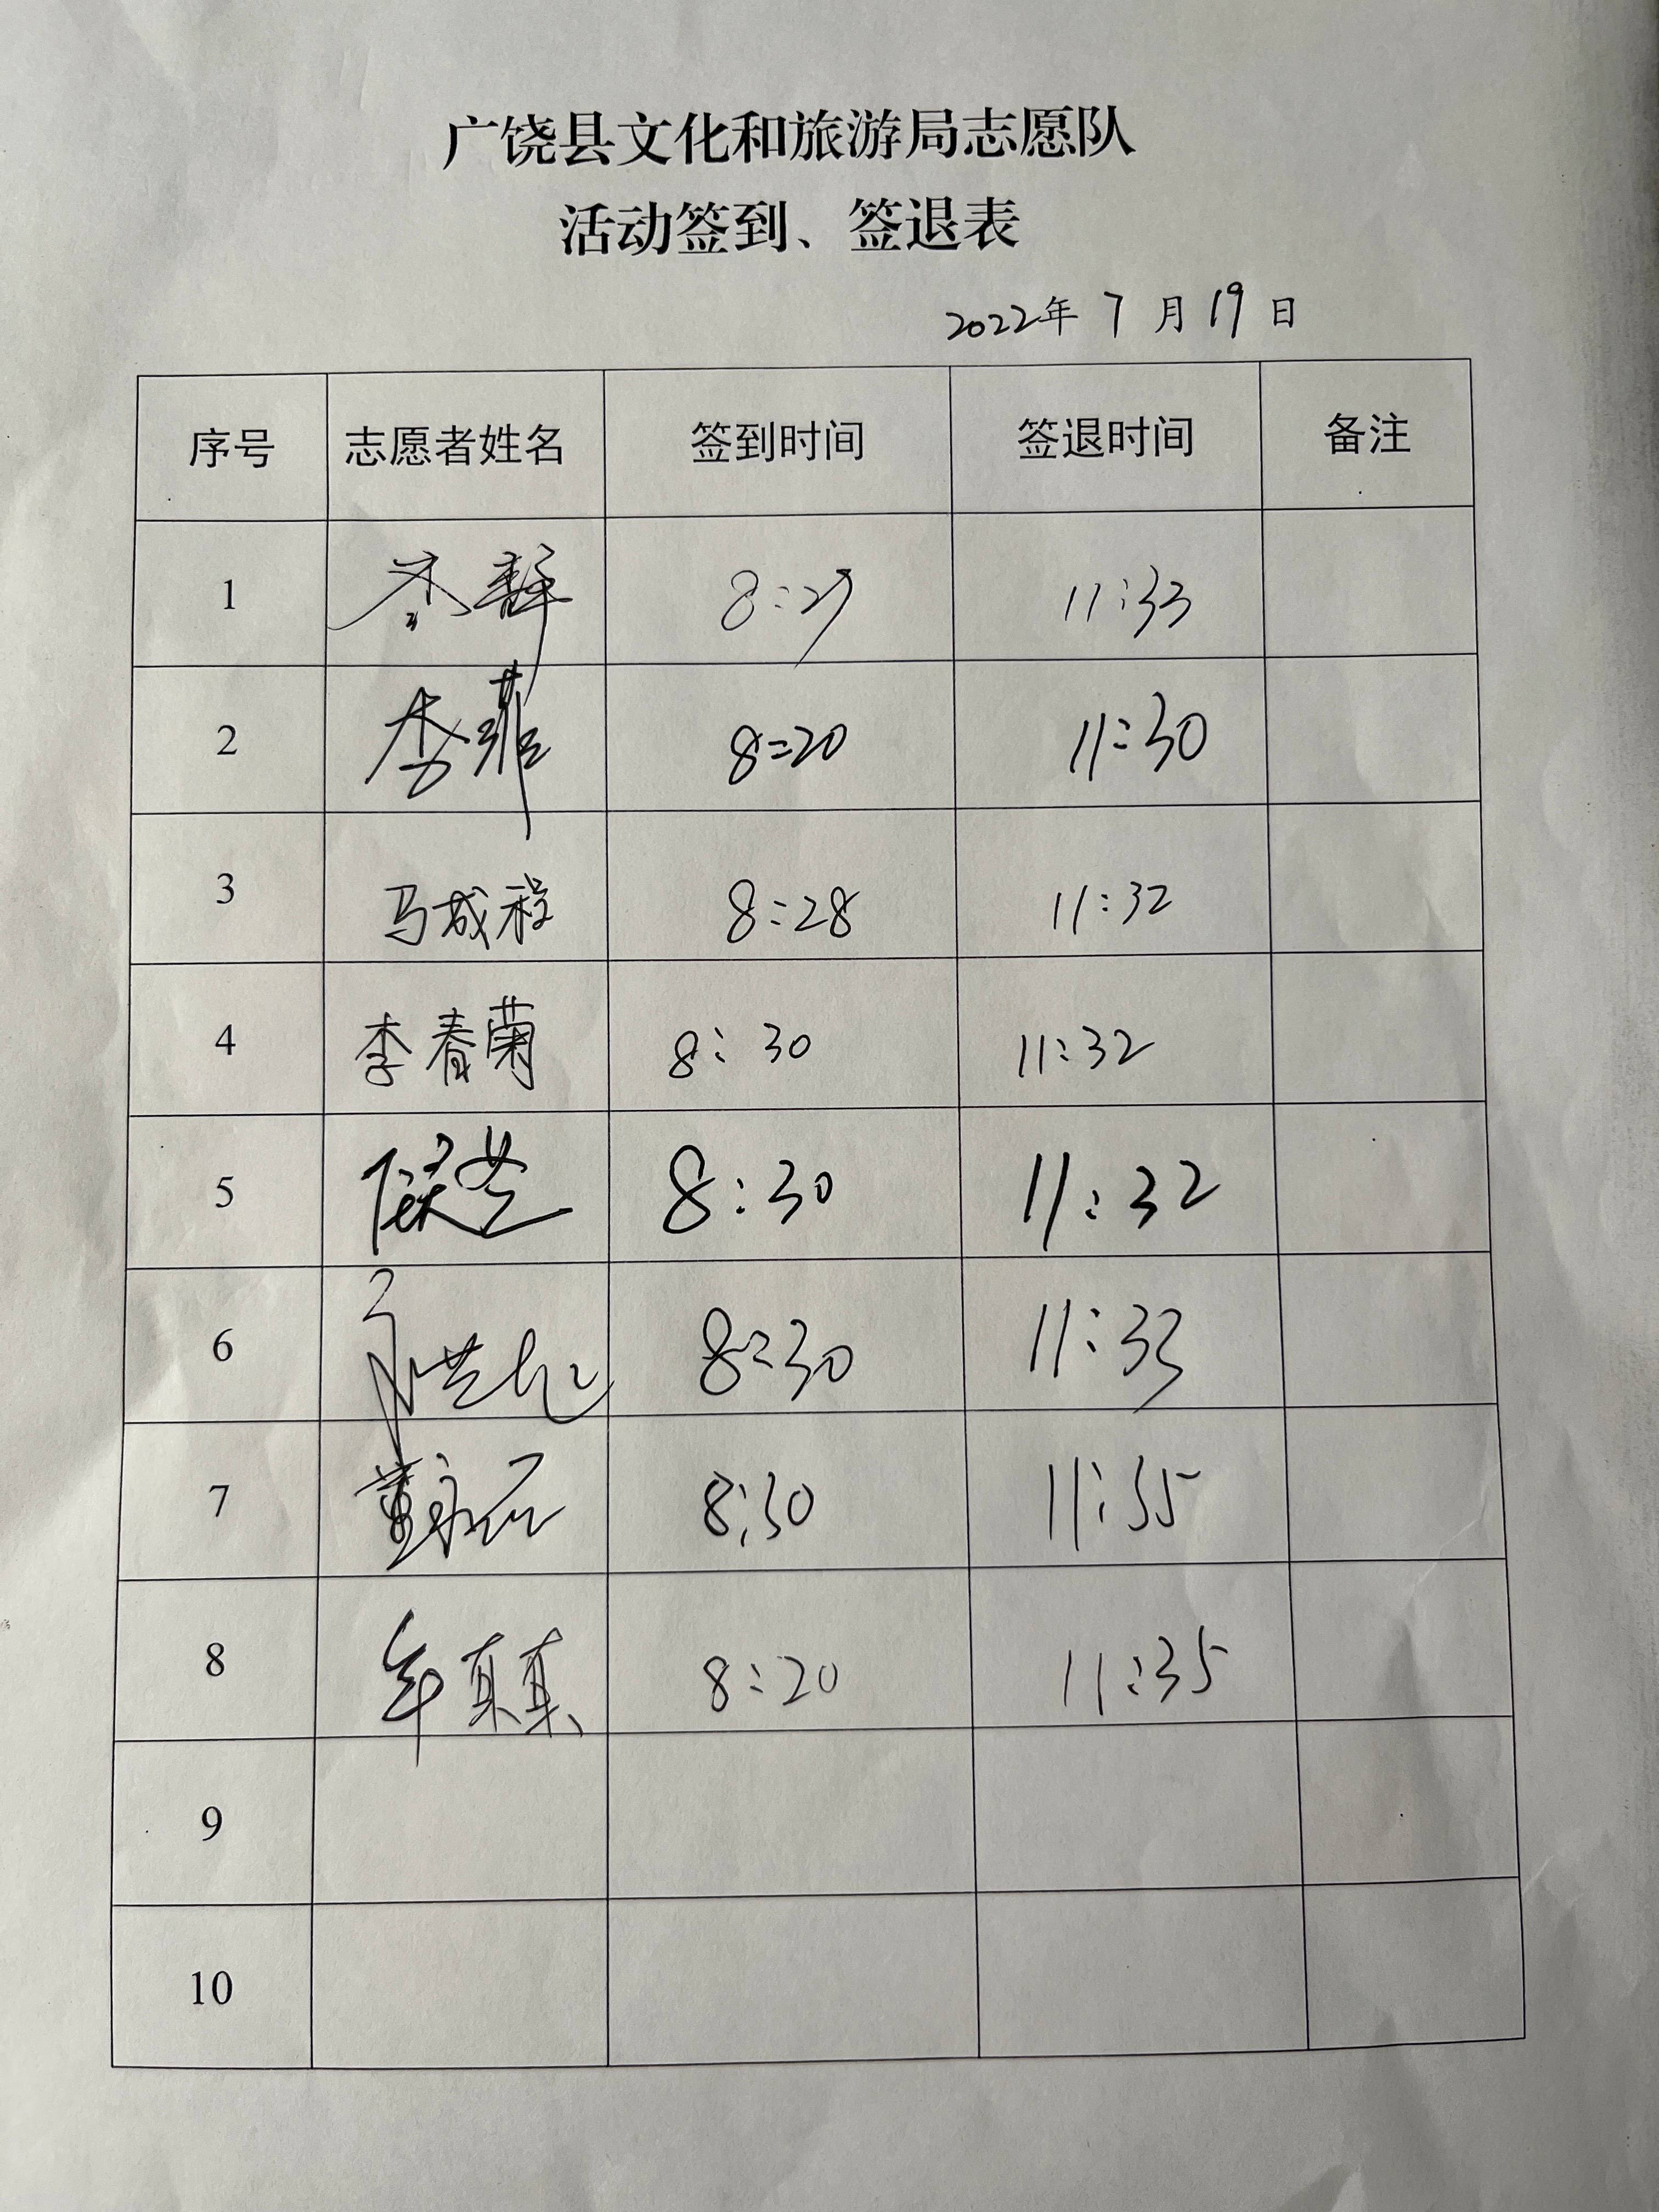 广饶县文化和旅游局志愿队
活动签到、签退表
2022年 7 月 19 日
序号 志愿者姓名 签到时间 签退时间 备注
1 8:27 11:33
2 李菲 8:20 11:30
3 马成程 8:28 11:32
4 李春菊 8:30 11:32
5 侯芸 8:30 11:32
6 8:30 11:33
7 董永石 8:30 11:35
8 牟真真 8:20 11:35
9
10